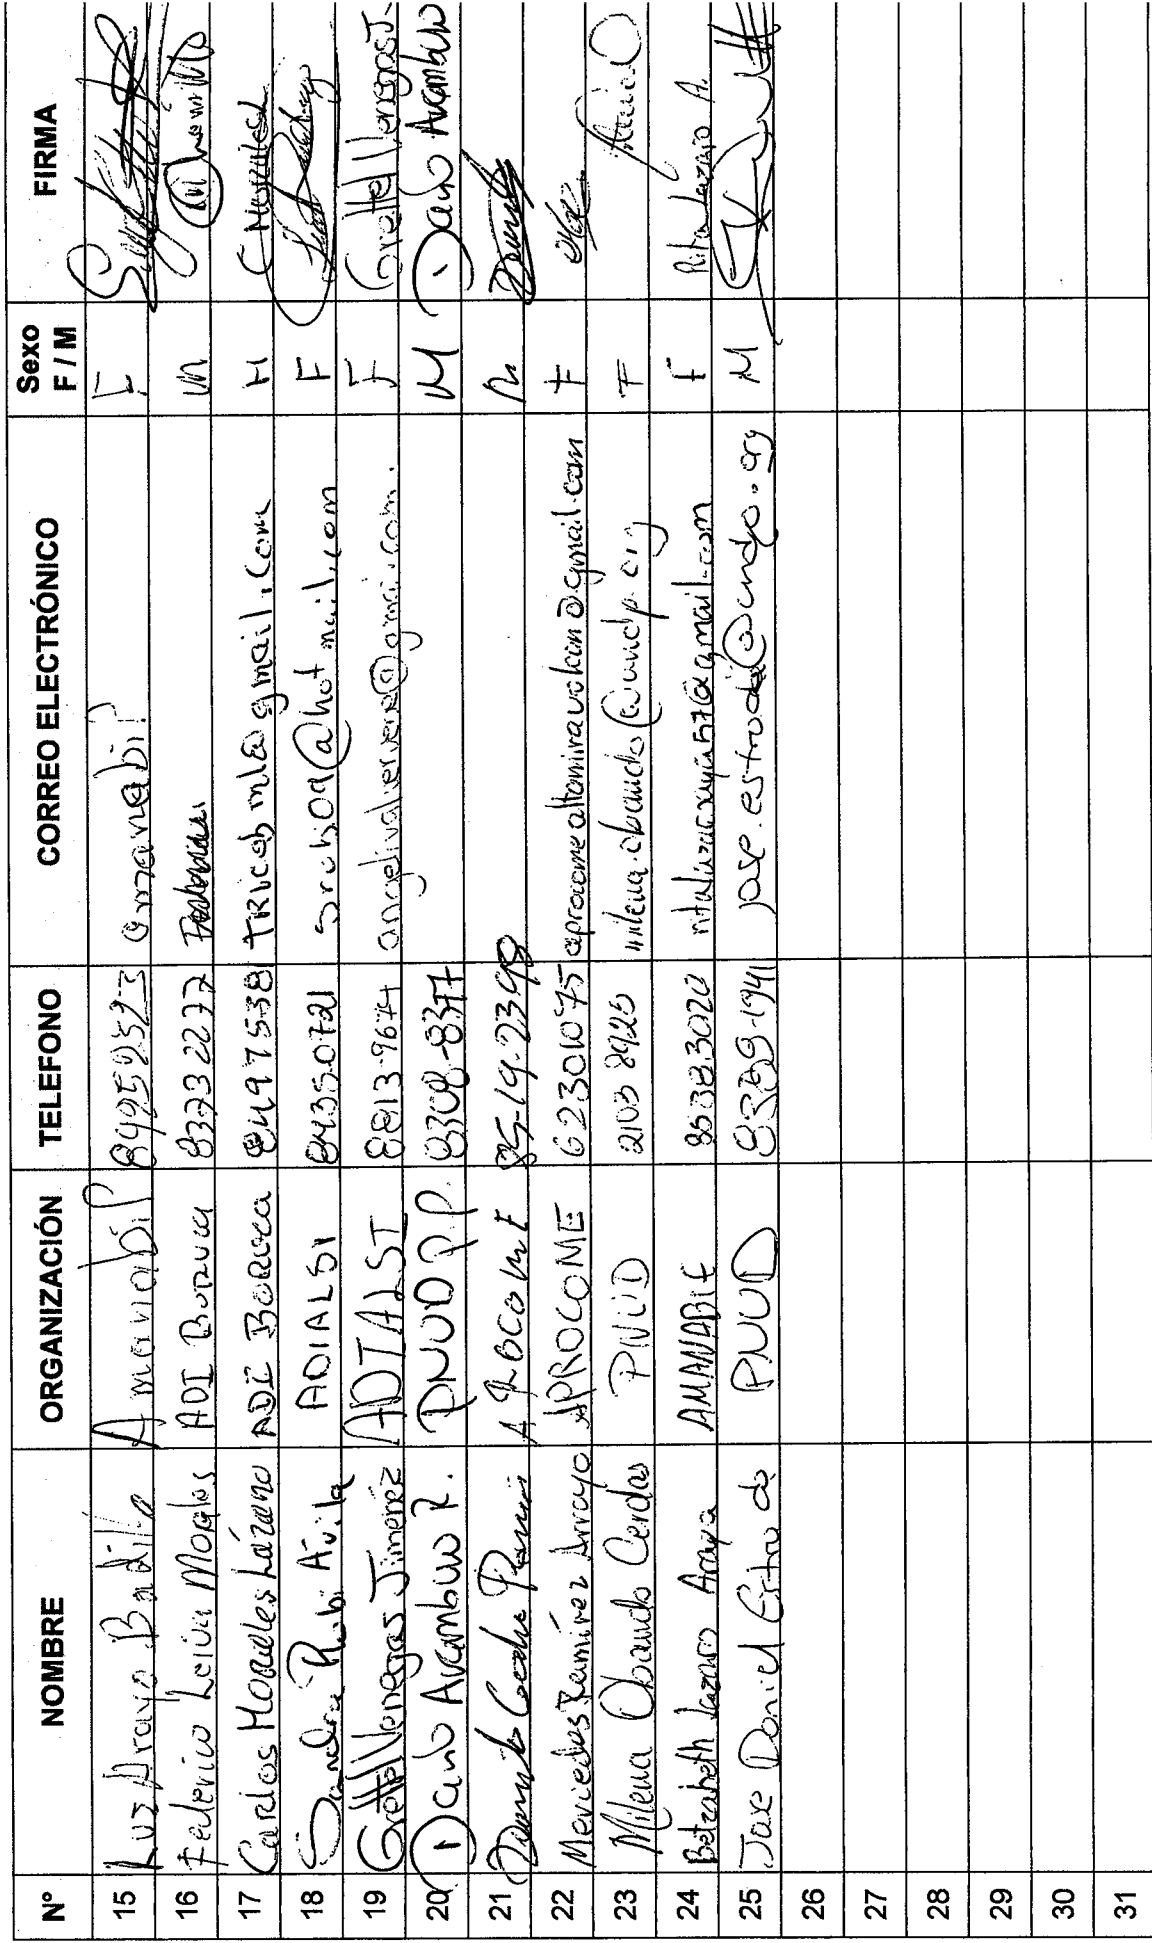 Nº NOMBRE ORGANIZACIÓN TELÉFONO CORREO ELECTRÓNICO Sexo F / M FIRMA
15 Luz Araya Badilla Amanabif 84959523 amanabif F
16 Federico Leiva Morales ADI Boruca 83732277 m
17 Carlos Morales Lázaro ADI BORUCA 84497538 TRicabml@gmail.com H CMorales L
18 Sandra Rubi Avila ADIALSI 84350721 @hotmail.com F
19 Grettel Venegas Jiménez ADIALSI 8813-9674 F Grettel Venegas J.
20 Dario Arambulo R. PNUD P.P. 8308-8377 M Dario Arambulo
21 APROCOME 85-19-2398 m
22 Mercedes Ramírez Arroyo APROCOME 62301075 aprocomealtamiravolcan@gmail.com F
23 Milena Obando Cerdas PNUD 2103 8925 milena.obando@undp.org F
24 Betzabeth Lazaro Araya AMANABIF 85383020 F Rita Lazaro A.
25 Jose Daniel Estrada PNUD 8389-1941 jose.estrada@undp.org M
26
27
28
29
30
31